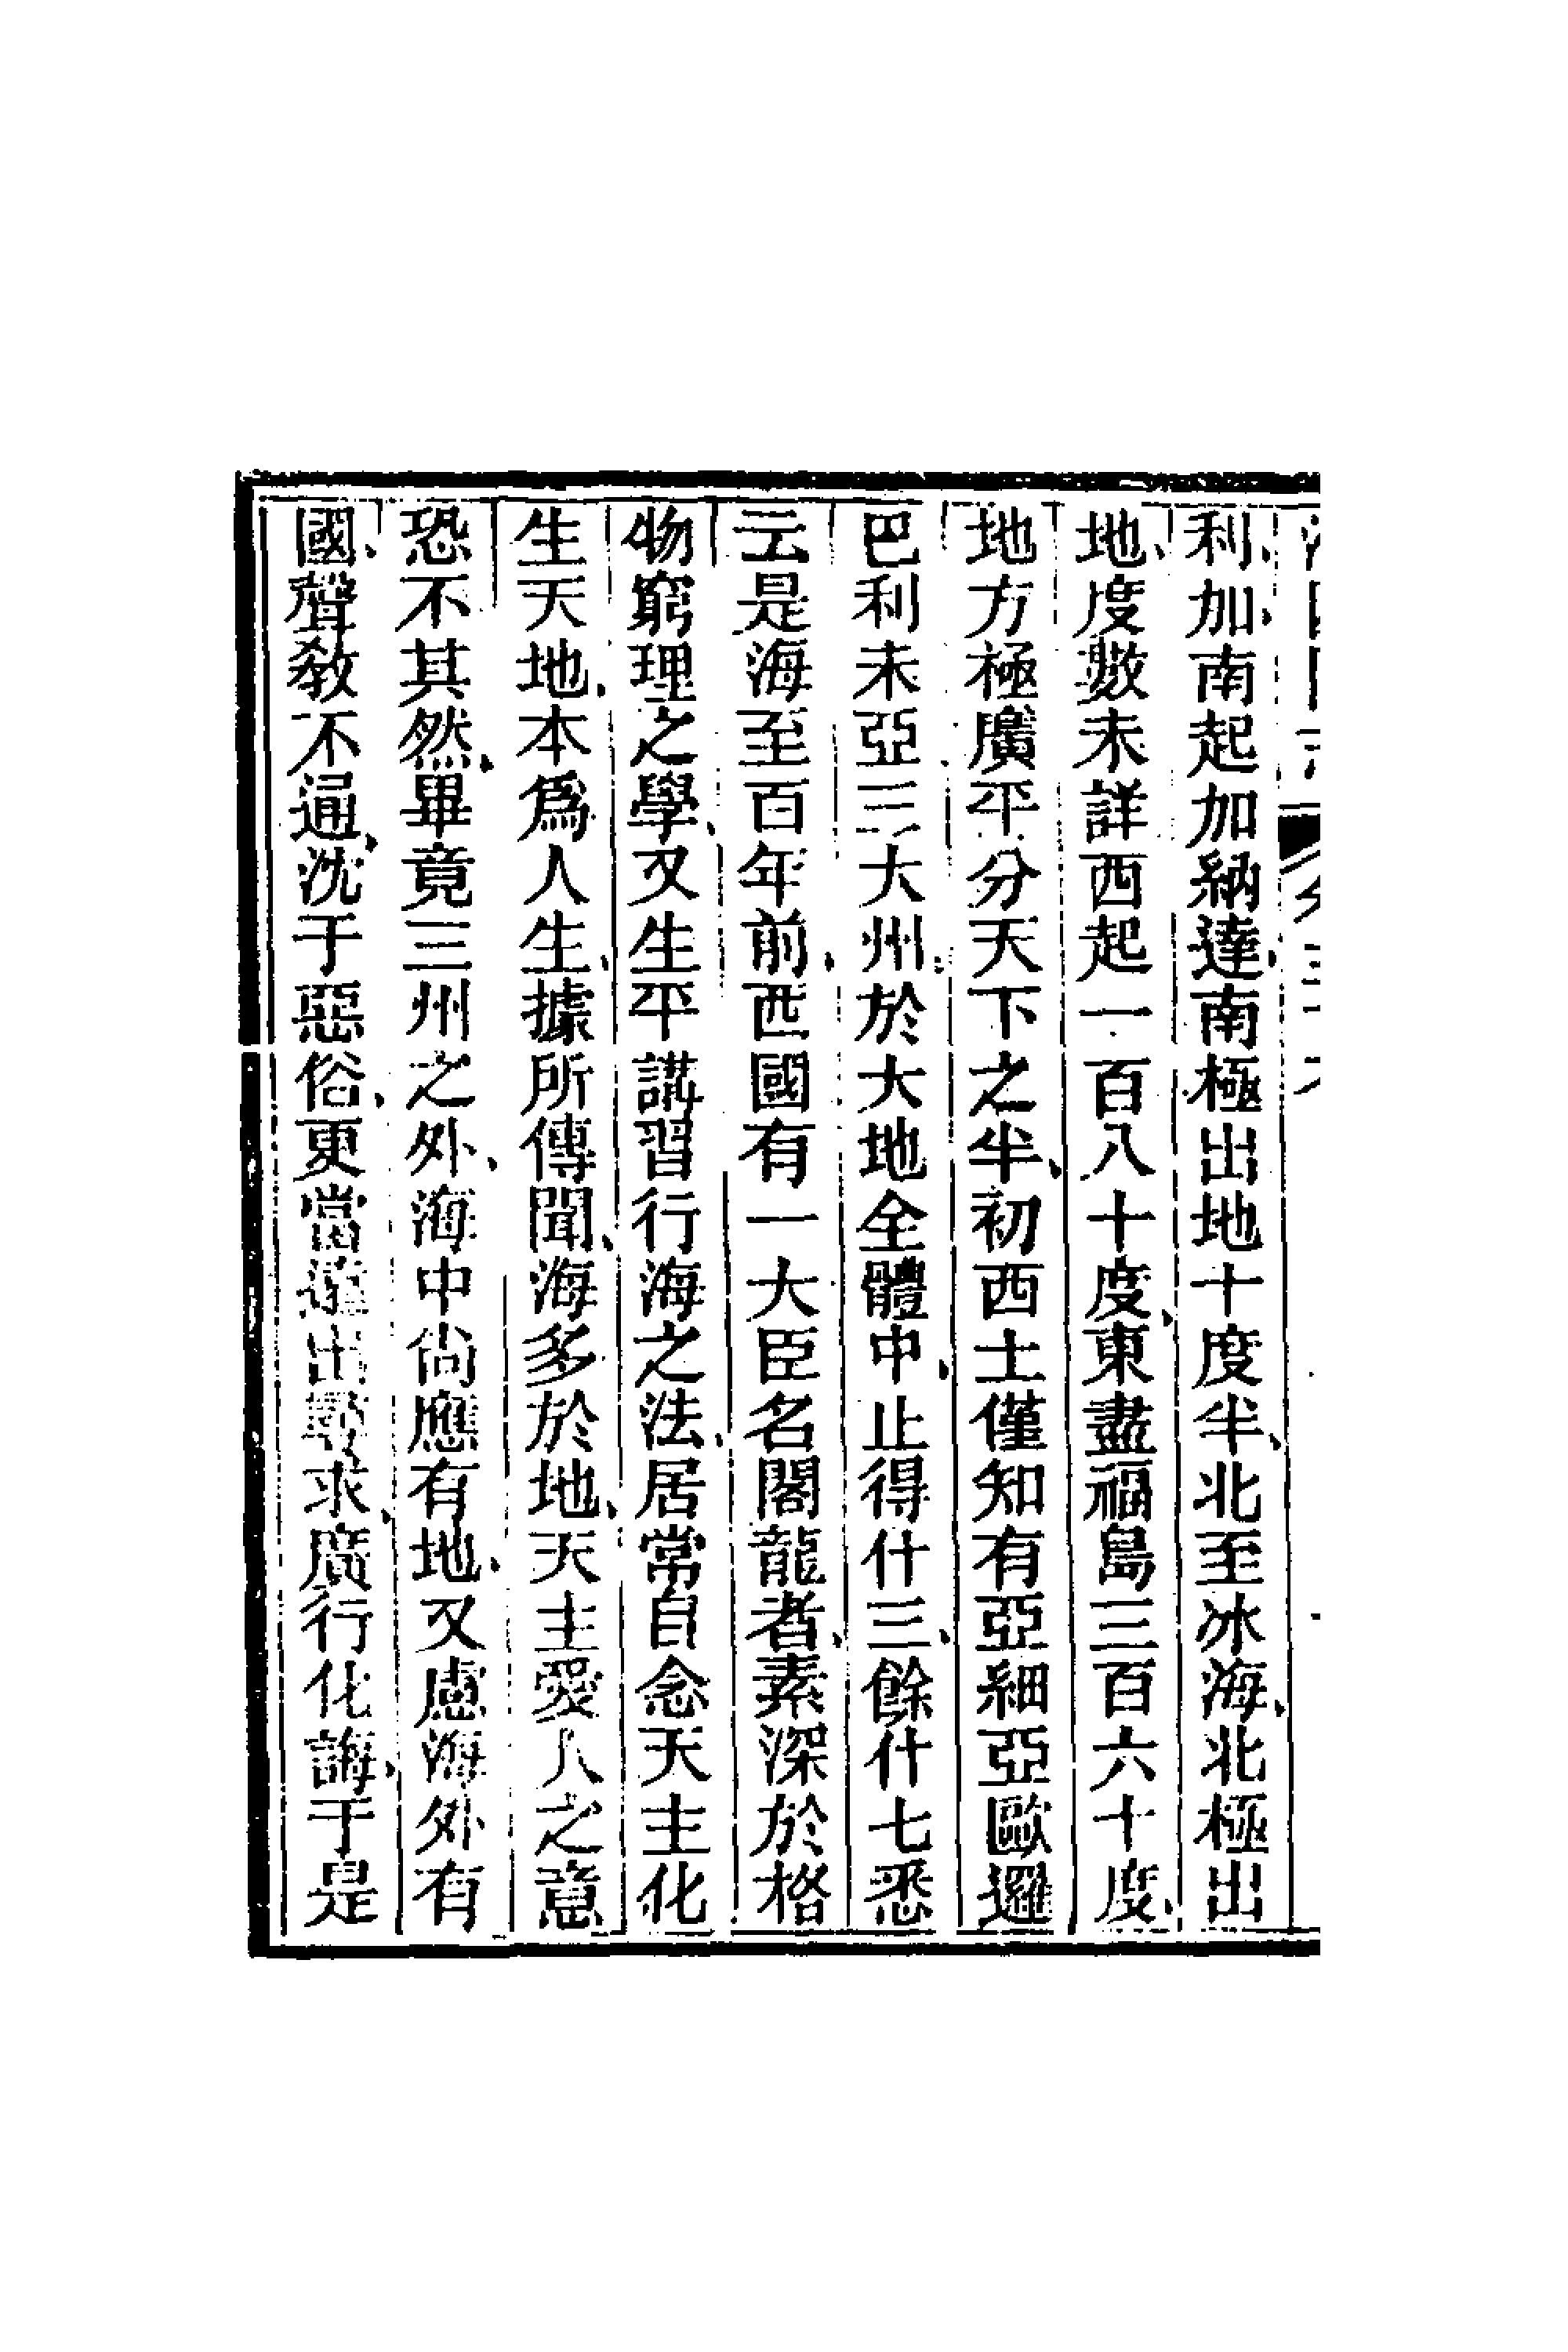 利加南起加納達南極出地十度半北至冰海北極出
地度數未詳西起一百八十度東盡福島三百六十度
地方極廣平分天下之半初西士僅知有亞細亞歐邏
巴利未亞三大州於大地全體中止得什三餘什七悉
云是海至百年前西國有一大臣名閣龍者素深於格
物窮理之學又生平講習行海之法居常自念天主化
生天地本爲人生據所傳聞海多於地天主愛人之意
恐不其然畢竟三州之外海中尚應有地又慮海外有
國聲教不通沈于惡俗更當遠出尋求廣行化誨于是